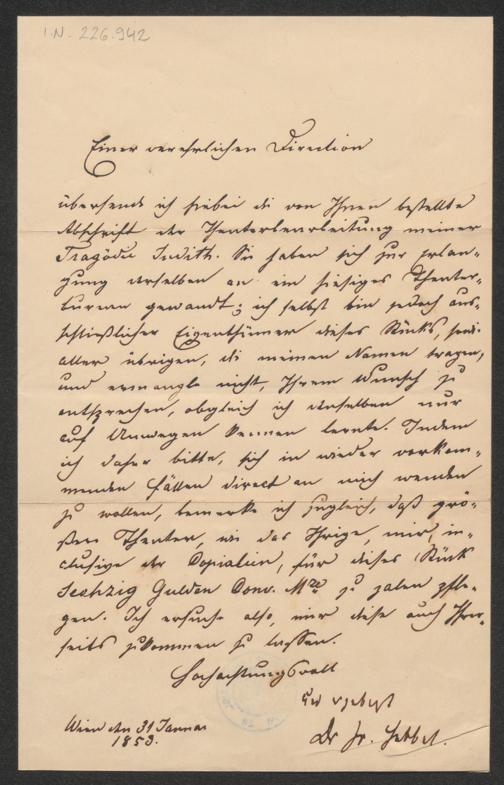 I.N. 226.942
Einer verehrlichen Direction
übersende ich hiebei die von Ihnen bestellte
Abschrift der Theaterbearbeitung meiner
Tragödie Judith. Sie haben sich zur Erlan-
gung derselben an ein hiesiges Theater-
bureau gewandt; ich selbst bin jedoch aus-
schließlicher Eigenthümer dieses Stücks, sowie
aller übrigen, die meinen Namen tragen,
und ermangle nicht, Ihrem Wunsch zu
entsprechen, obgleich ich denselben nur
auf Umwegen kennen lernte. Indem
ich daher bitte, sich in wieder vorkom-
menden Fällen direct an mich wenden
zu wollen, bemerke ich zugleich, daß grö-
ßere Theater, wie das Ihrige, mir, in-
clusive der Copialien, für dieses Stück
Sechzig Gulden Conv. Mze zu zalen pfle-
gen. Ich ersuche also, mir diese auch Ihrer-
seits zukommen zu lassen.
Hochachtungsvoll
ergebenst
Wien den 31 Januar
1853.
Dr Fr. Hebbel.